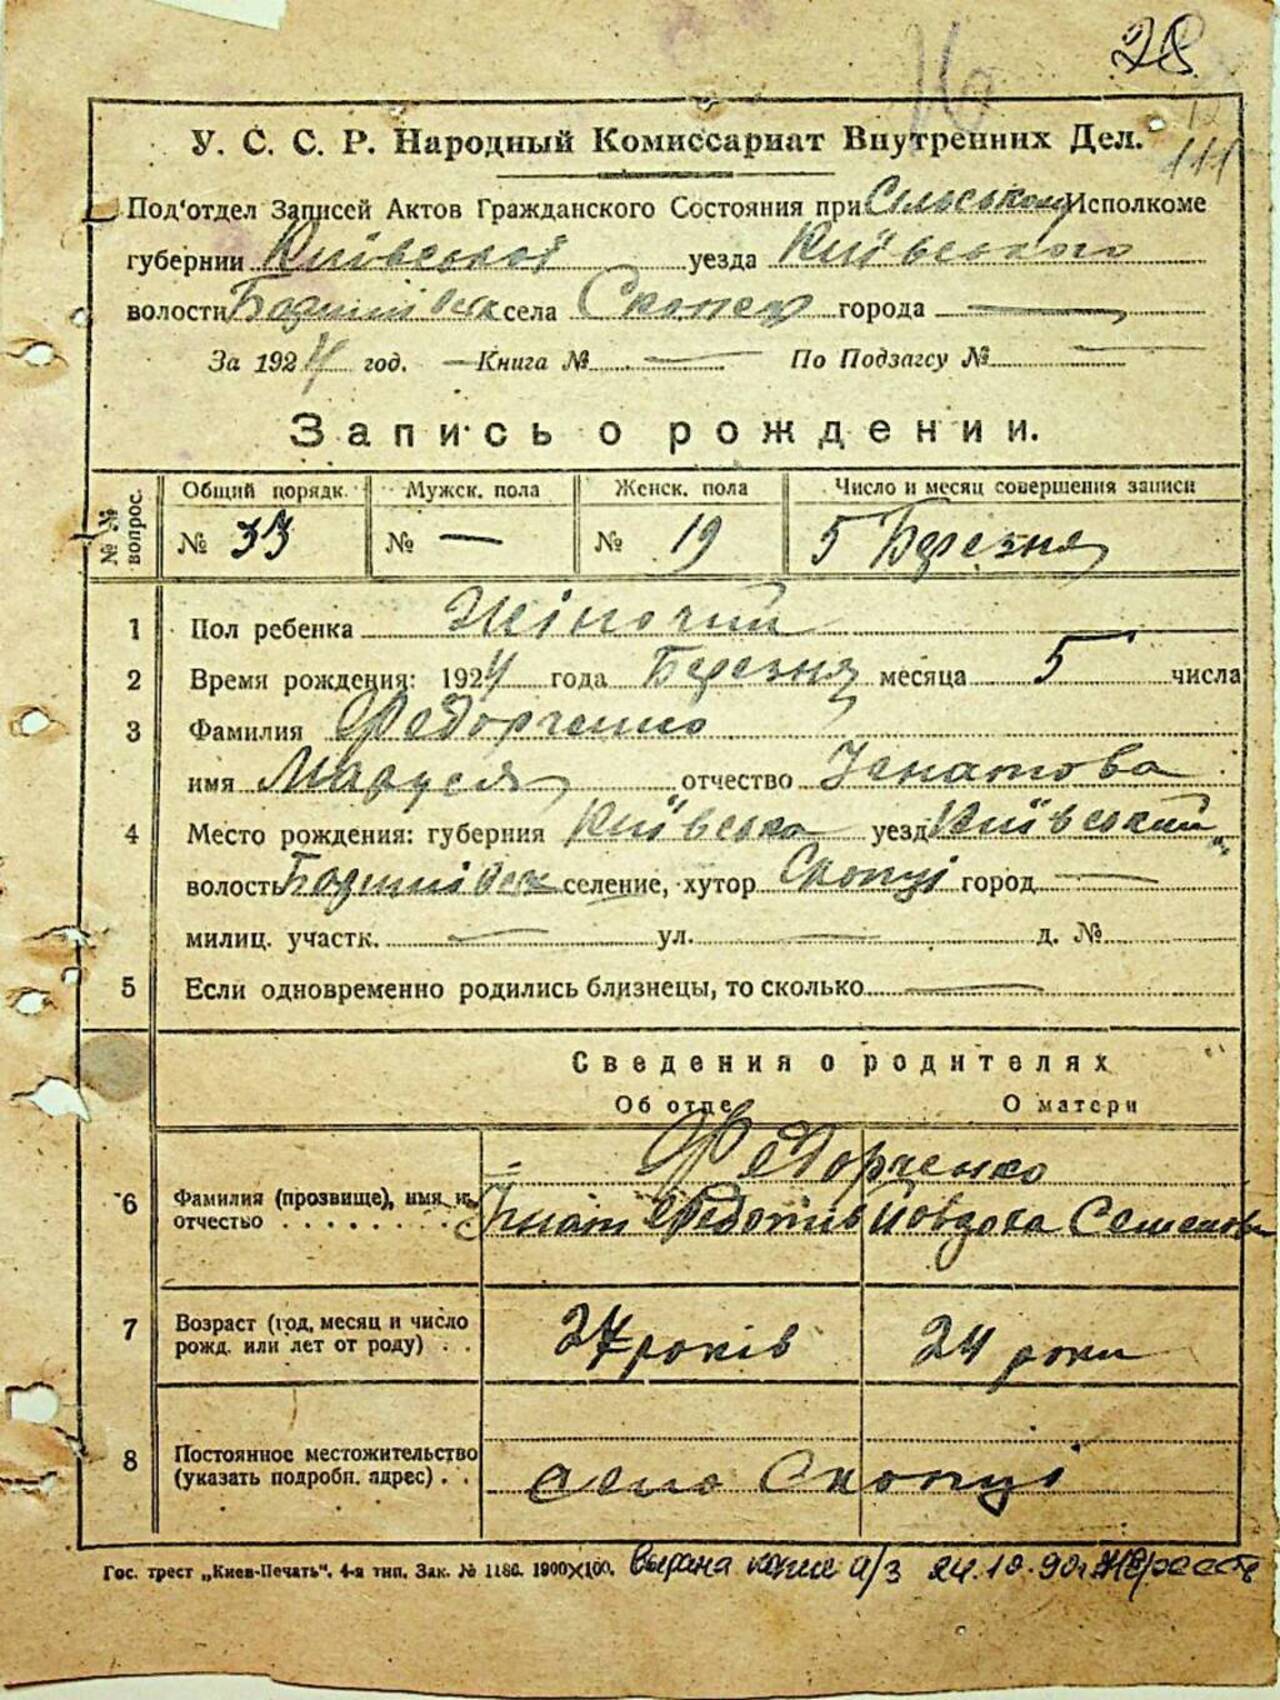 28
111
У. С. С. Р. Народный Комиссариат Внутренних Дел.
Под'отдел Записей Актов Гражданского Состояния при Сільському Исполкоме
губернии Київської уезда Київського
волости села Скопец города —
За 1924 год. — Книга № — По Подзагсу № —
Запись о рождении.
№ № вопрос. Общий порядк. Мужск. пола Женск. пола Число и месяц совершения записи
№ 33 № — № 19 5 Березня
1 Пол ребенка Жіночий
2 Время рождения: 1924 года Березня месяца 5 числа
3 Фамилия Федорченко
имя Маруся отчество Ігнатова
4 Место рождения: губерния Київська уезд Київський
волость селение, хутор Скопці город —
милиц. участк. — ул. — д. №
5 Если одновременно родились близнецы, то сколько —
Сведения о родителях
Об отце О матери
Федорченко
6 Фамилия (прозвище), имя и отчество Ігнат Федотів Йовдоха Семенова
7 Возраст (год, месяц и число рожд. или лет от роду) 27 років 24 роки
8 Постоянное местожительство (указать подробн. адрес) село Скопці
Гос. трест „Киев-Печать". 4-я тип. Зак. № 1186. 1900×100. Выдана копие а/з 24.10.90г.